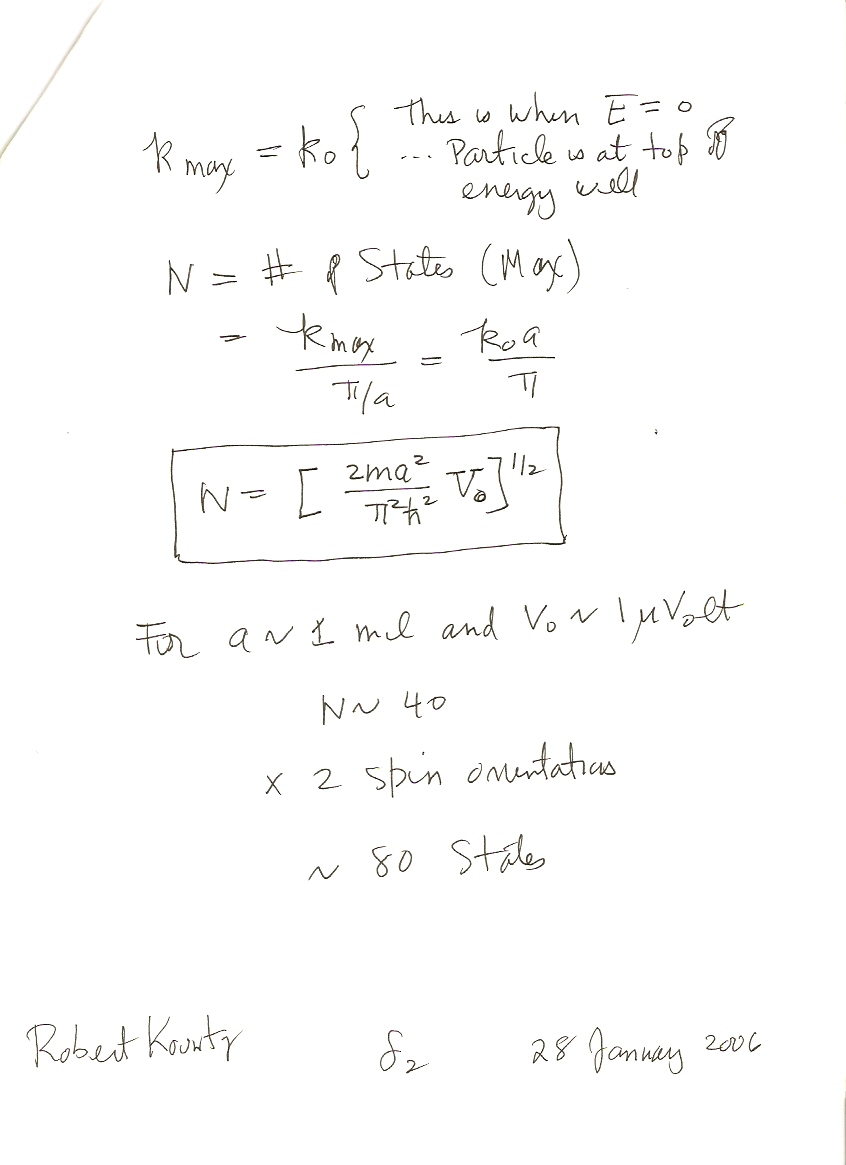 k max = k₀ { This is when E = 0
... Particle is at top of
energy well
N = # of States (Max)
= k max / π/a = k₀a / π
N = [ 2ma² / π²ħ² V₀ ]^1/2
For a ~ 1 mil and V₀ ~ 1 μVolt
N ~ 40
x 2 spin orientations
~ 80 States
Robert Kountz 28 January 2006